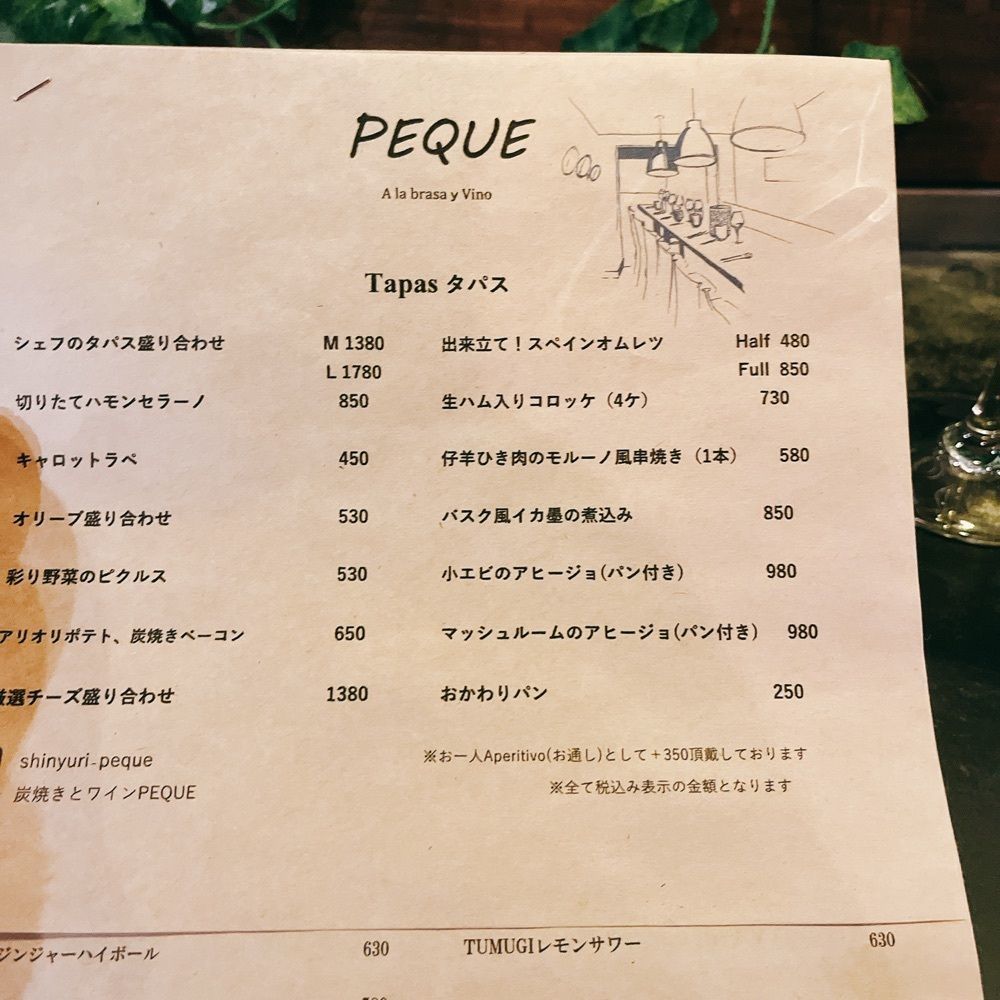 PEQUE
A la brasa y Vino
Tapas タパス
シェフのタパス盛り合わせ M 1380
L 1780
切りたてハモンセラーノ 850
キャロットラペ 450
オリーブ盛り合わせ 530
彩り野菜のピクルス 530
アリオリポテト、炭焼きベーコン 650
厳選チーズ盛り合わせ 1380
出来立て！スペインオムレツ Half 480
Full 850
生ハム入りコロッケ（4ケ） 730
仔羊ひき肉のモルーノ風串焼き（1本） 580
バスク風イカ墨の煮込み 850
小エビのアヒージョ(パン付き) 980
マッシュルームのアヒージョ(パン付き) 980
おかわりパン 250
shinyuri-peque
炭焼きとワインPEQUE
※お一人Aperitivo(お通し)として＋350頂戴しております
※全て税込み表示の金額となります
ジンジャーハイボール 630
TUMUGIレモンサワー 630